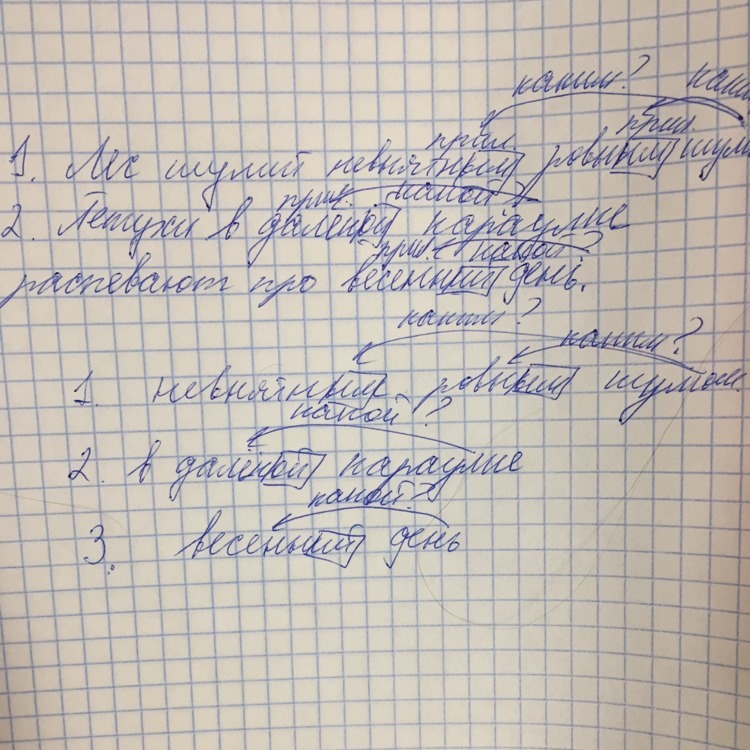 каким? каким
прил. прил.
1. Лес шумит невнятным ровным шум
прил. какой
2. Петухи в далёкой караулке
прил. какой?
распевают про весенний день.
каким?
каким?
1. невнятным ровным шумом.
какой?
2. в далёкой караулке
какой?
3. весенний день